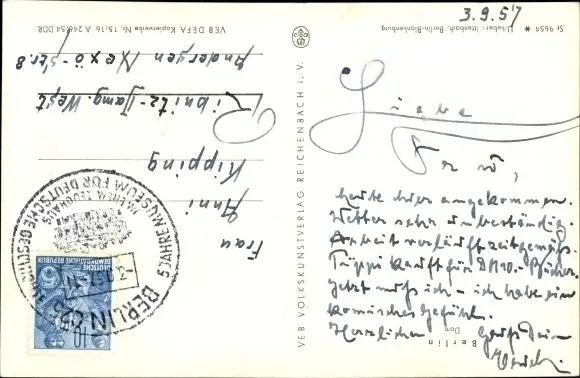 3.9.57
Liebe
heute hier angekommen.
Wetter sehr unbeständig.
Arbeit verläuft zeitgemäß.
Püppi kauft für DM 10.- Bücher.
Jetzt muß ich - ich habe ein
komisches Gefühl.
Herzlichen Gruß Dein
Berlin
Dom
St 9659 * Urheber: Ittenbach, Berlin-Blankenburg
VEB VOLKSKUNSTVERLAG REICHENBACH I. V.
VEB DEFA Kopierwerke Nr. 15/16 A 246/54 DDR
Frau
Anni
Kipping
Ribnitz-Damg. West
Andersen Nexö-Str. 8
5 JAHRE MUSEUM FÜR DEUTSCHE GESCHICHTE
IM EHEM. ZEUGHAUS
BERLIN
DEUTSCHE
DEMOKRATISCHE REPUBLIK
10